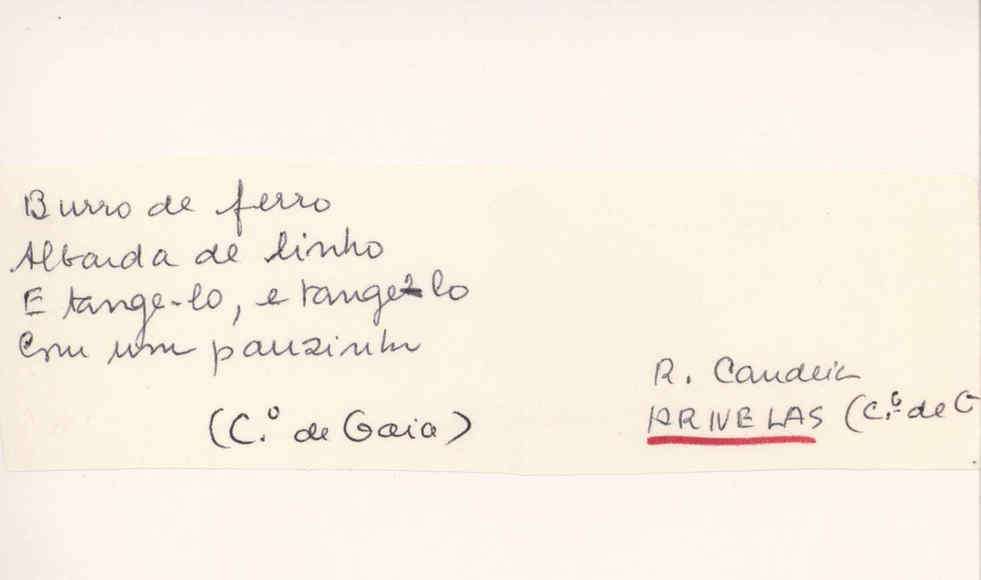 Burro de ferro
Albarda de linho
E tange-lo, e tange-lo
Com um pauzinho
(C.º de Gaia)
R. Candeia
ARNELAS (C.º de G